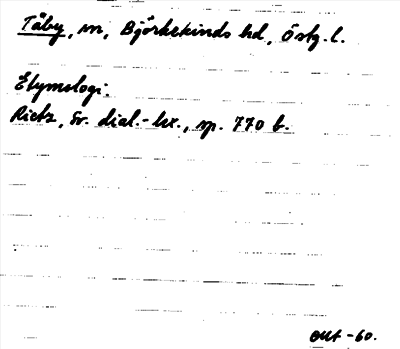 Täby, sn, Björkekinds hd, Östg. l.
Etymologi:
Rietz, Sv. dial.-lex., sp. 770 b.
-60.